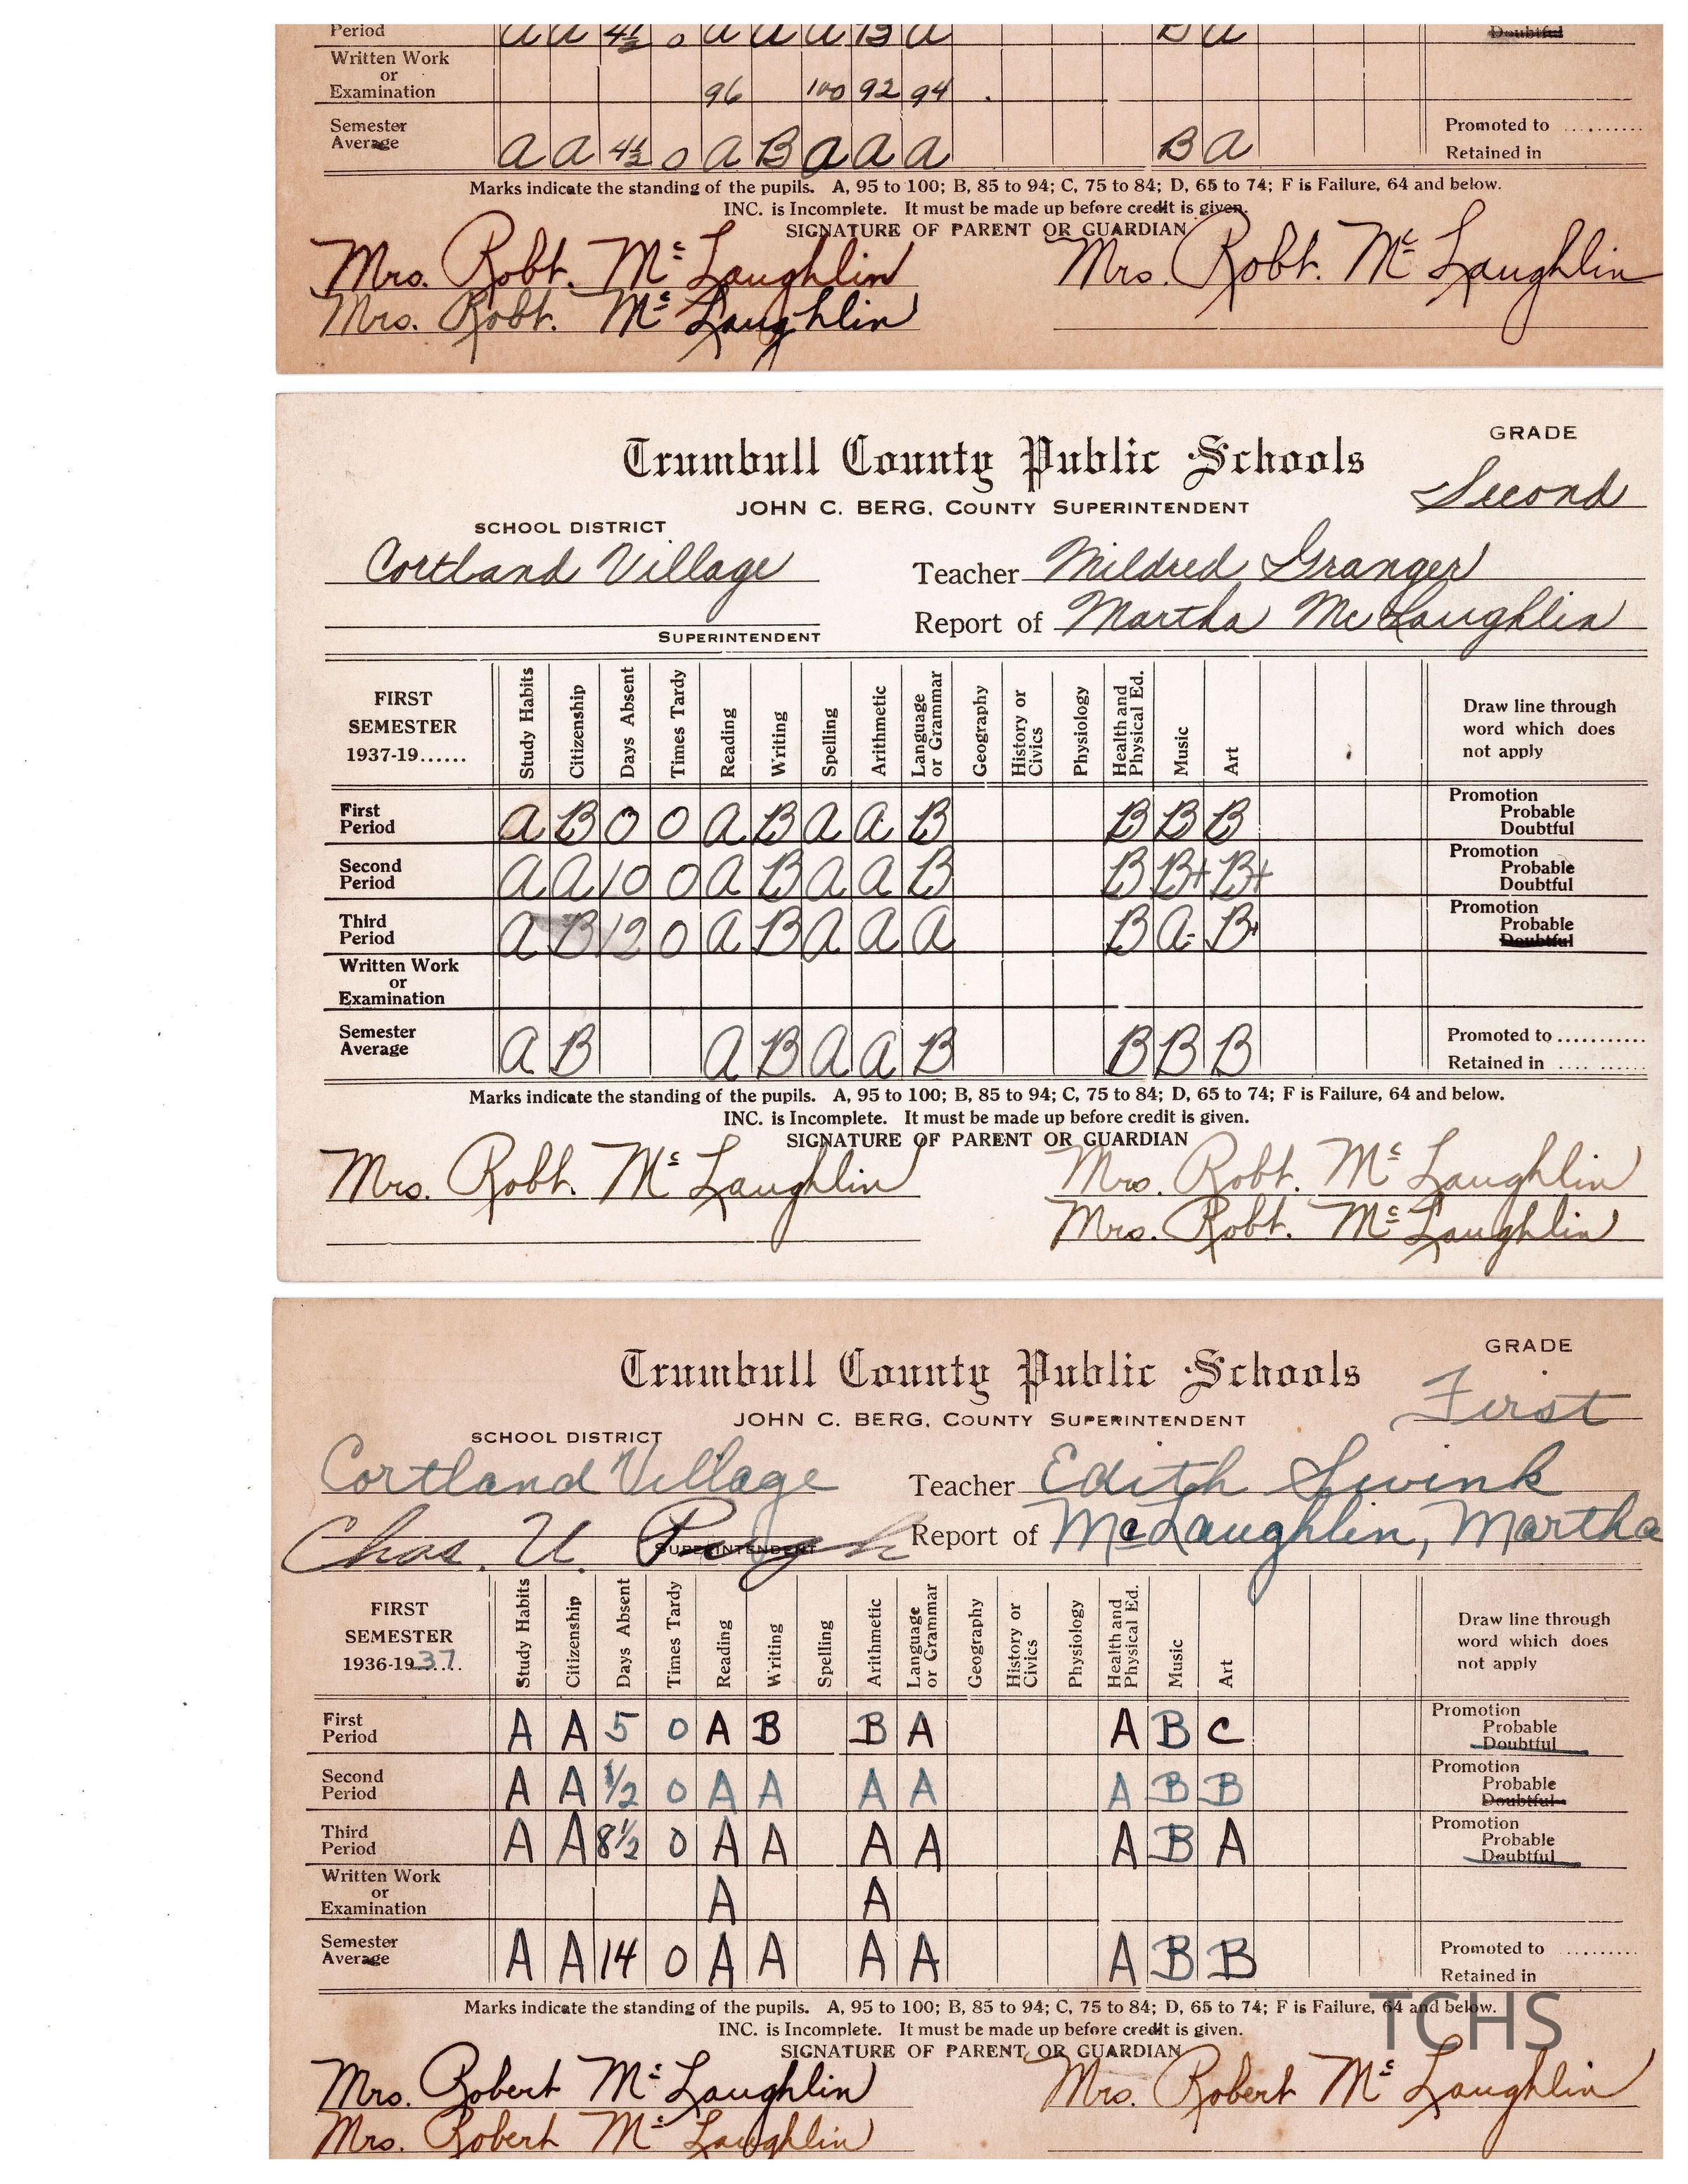 Period a a 4½ 0 a a a B a B a Doubtful
Written Work
or
Examination 96 100 92 94
Semester
Average a a 4½ 0 a B a a a B a
Promoted to ..........
Retained in
Marks indicate the standing of the pupils. A, 95 to 100; B, 85 to 94; C, 75 to 84; D, 65 to 74; F is Failure, 64 and below.
INC. is Incomplete. It must be made up before credit is given.
SIGNATURE OF PARENT OR GUARDIAN
Mrs. Robt. Mc Laughlin Mrs. Robt. Mc Laughlin
Mrs. Robt. Mc Laughlin
GRADE
Trumbull County Public Schools
Second
JOHN C. BERG, COUNTY SUPERINTENDENT
SCHOOL DISTRICT
Cortland Village Teacher Mildred Granger
Report of Martha McLaughlin
SUPERINTENDENT
FIRST
SEMESTER
1937-19......
Study Habits Citizenship Days Absent Times Tardy Reading Writing Spelling Arithmetic Language or Grammar Geography History or Civics Physiology Health and Physical Ed. Music Art
Draw line through
word which does
not apply
First
Period a B 0 0 a B a a B B B B
Promotion
Probable
Doubtful
Second
Period a a 10 0 a B a a B B B+ B+
Promotion
Probable
Doubtful
Third
Period a B 12 0 a B a a a B a- B+
Promotion
Probable
Doubtful
Written Work
or
Examination
Semester
Average a B a B a a B B B B
Promoted to ...........
Retained in .... ......
Marks indicate the standing of the pupils. A, 95 to 100; B, 85 to 94; C, 75 to 84; D, 65 to 74; F is Failure, 64 and below.
INC. is Incomplete. It must be made up before credit is given.
SIGNATURE OF PARENT OR GUARDIAN
Mrs. Robt. Mc Laughlin Mrs. Robt. Mc Laughlin
Mrs. Robt. Mc Laughlin
GRADE
Trumbull County Public Schools
First
JOHN C. BERG, COUNTY SUPERINTENDENT
SCHOOL DISTRICT
Cortland Village Teacher Edith Swink
Chas. U. Report of McLaughlin, Martha
SUPERINTENDENT
FIRST
SEMESTER
1936-1937....
Study Habits Citizenship Days Absent Times Tardy Reading Writing Spelling Arithmetic Language or Grammar Geography History or Civics Physiology Health and Physical Ed. Music Art
Draw line through
word which does
not apply
First
Period A A 5 0 A B B A A B C
Promotion
Probable
Doubtful
Second
Period A A ½ 0 A A A A A B B
Promotion
Probable
Doubtful
Third
Period A A 8½ 0 A A A A A B A
Promotion
Probable
Doubtful
Written Work
or
Examination A A
Semester
Average A A 14 0 A A A A A B B
Promoted to ..........
Retained in
Marks indicate the standing of the pupils. A, 95 to 100; B, 85 to 94; C, 75 to 84; D, 65 to 74; F is Failure, 64 and below.
TCHS
INC. is Incomplete. It must be made up before credit is given.
SIGNATURE OF PARENT OR GUARDIAN
Mrs. Robert Mc Laughlin Mrs. Robert Mc Laughlin
Mrs. Robert Mc Laughlin